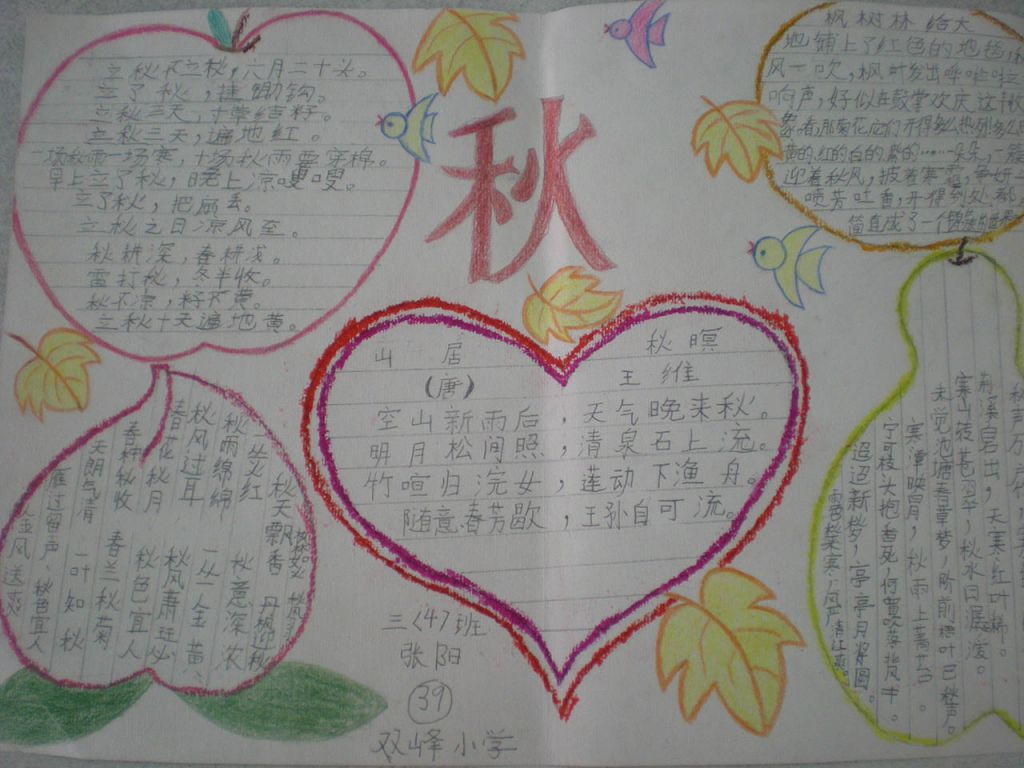 立秋不立秋，六月二十头。
立了秋，挂锄钩。
立秋三天，寸草结籽。
立秋三天，遍地红。
一场秋雨一场寒，十场秋雨要穿棉。
早上立了秋，晚上凉嗖嗖。
立了秋，把扇丢。
立秋之日凉风至。
秋耕深，春耕浅。
雷打秋，冬半收。
秋不凉，籽不黄。
立秋十天遍地黄。
秋
枫树林给大
地铺上了红色的地毯
风一吹，枫叶发出哗啦啦
响声，好似在鼓掌欢庆这个秋
黄的、红的、白的、紫的……一朵朵，一簇
迎着秋风，披着寒霜，争妍
喷芳吐香，开得到处都
简直成了一个
山居 秋暝
（唐） 王维
空山新雨后，天气晚来秋。
明月松间照，清泉石上流。
竹喧归浣女，莲动下渔舟。
随意春芳歇，王孙自可流。
秋天飘香 丹枫迎秋
一丛红 秋意深浓
秋雨绵绵 一丛金黄
秋风过耳 秋风萧瑟
春花秋月 秋色宜人
春种秋收 春兰秋菊
天朗气清 一叶知秋
雁过留声 秋色宜人
金风送爽
荆溪白石出，天寒红叶稀。
寒山转苍翠，秋水日潺湲。
未觉池塘春草梦，阶前梧叶已秋声。
寒潭映月，秋雨上
宁可枝头抱香死，何曾吹落北风中。
迢迢新秋夕，亭亭月将圆。
三〈4〉班
张阳
39
双峰小学